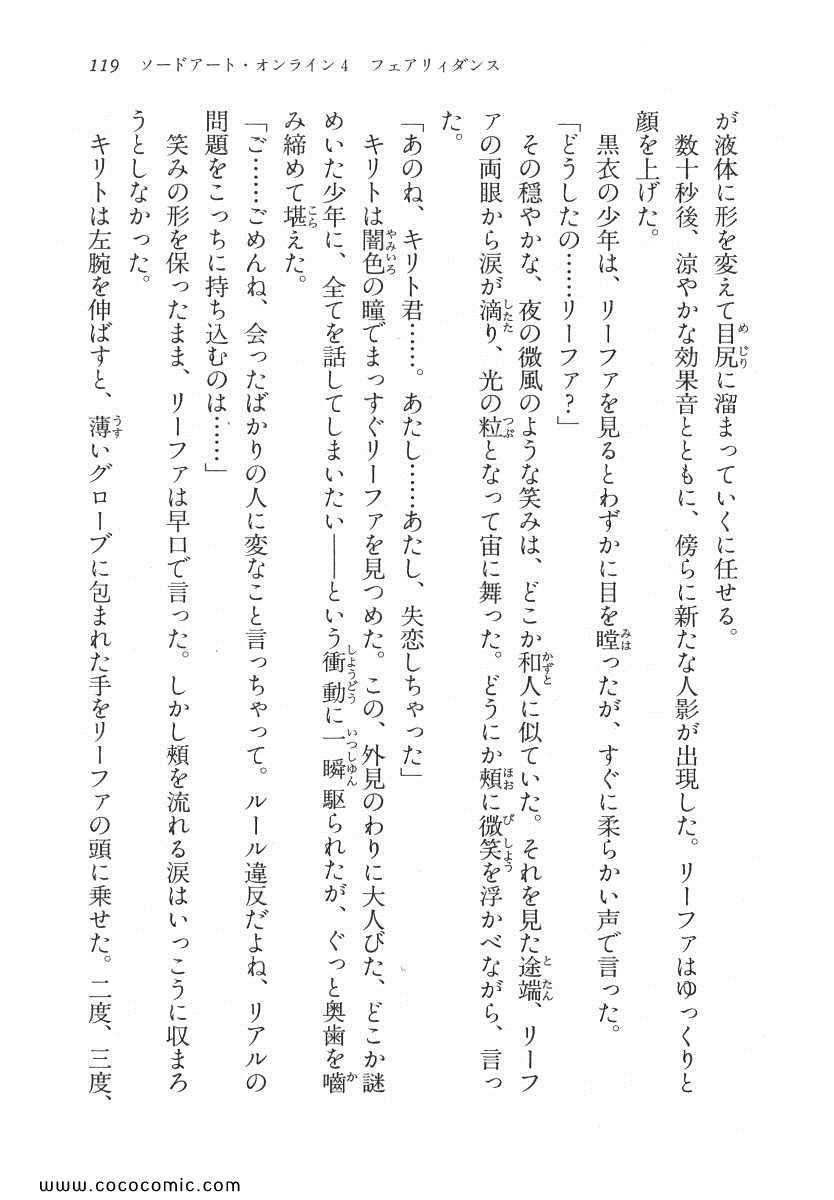 119　ソードアート・オンライン4　フェアリィダンス
が液体に形を変えて目尻に溜まっていくに任せる。
　数十秒後、涼やかな効果音とともに、傍らに新たな人影が出現した。リーファはゆっくりと
顔を上げた。
　黒衣の少年は、リーファを見るとわずかに目を瞠ったが、すぐに柔らかい声で言った。
「どうしたの……リーファ？」
　その穏やかな、夜の微風のような笑みは、どこか和人に似ていた。それを見た途端、リーフ
ァの両眼から涙が滴り、光の粒となって宙に舞った。どうにか頬に微笑を浮かべながら、言っ
た。
「あのね、キリト君……。あたし……あたし、失恋しちゃった」
　キリトは闇色の瞳でまっすぐリーファを見つめた。この、外見のわりに大人びた、どこか謎
めいた少年に、全てを話してしまいたい――という衝動に一瞬駆られたが、ぐっと奥歯を嚙
み締めて堪えた。
「ご……ごめんね、会ったばかりの人に変なこと言っちゃって。ルール違反だよね、リアルの
問題をこっちに持ち込むのは……」
　笑みの形を保ったまま、リーファは早口で言った。しかし頬を流れる涙はいっこうに収まろ
うとしなかった。
　キリトは左腕を伸ばすと、薄いグローブに包まれた手をリーファの頭に乗せた。二度、三度、
www.cococomic.com